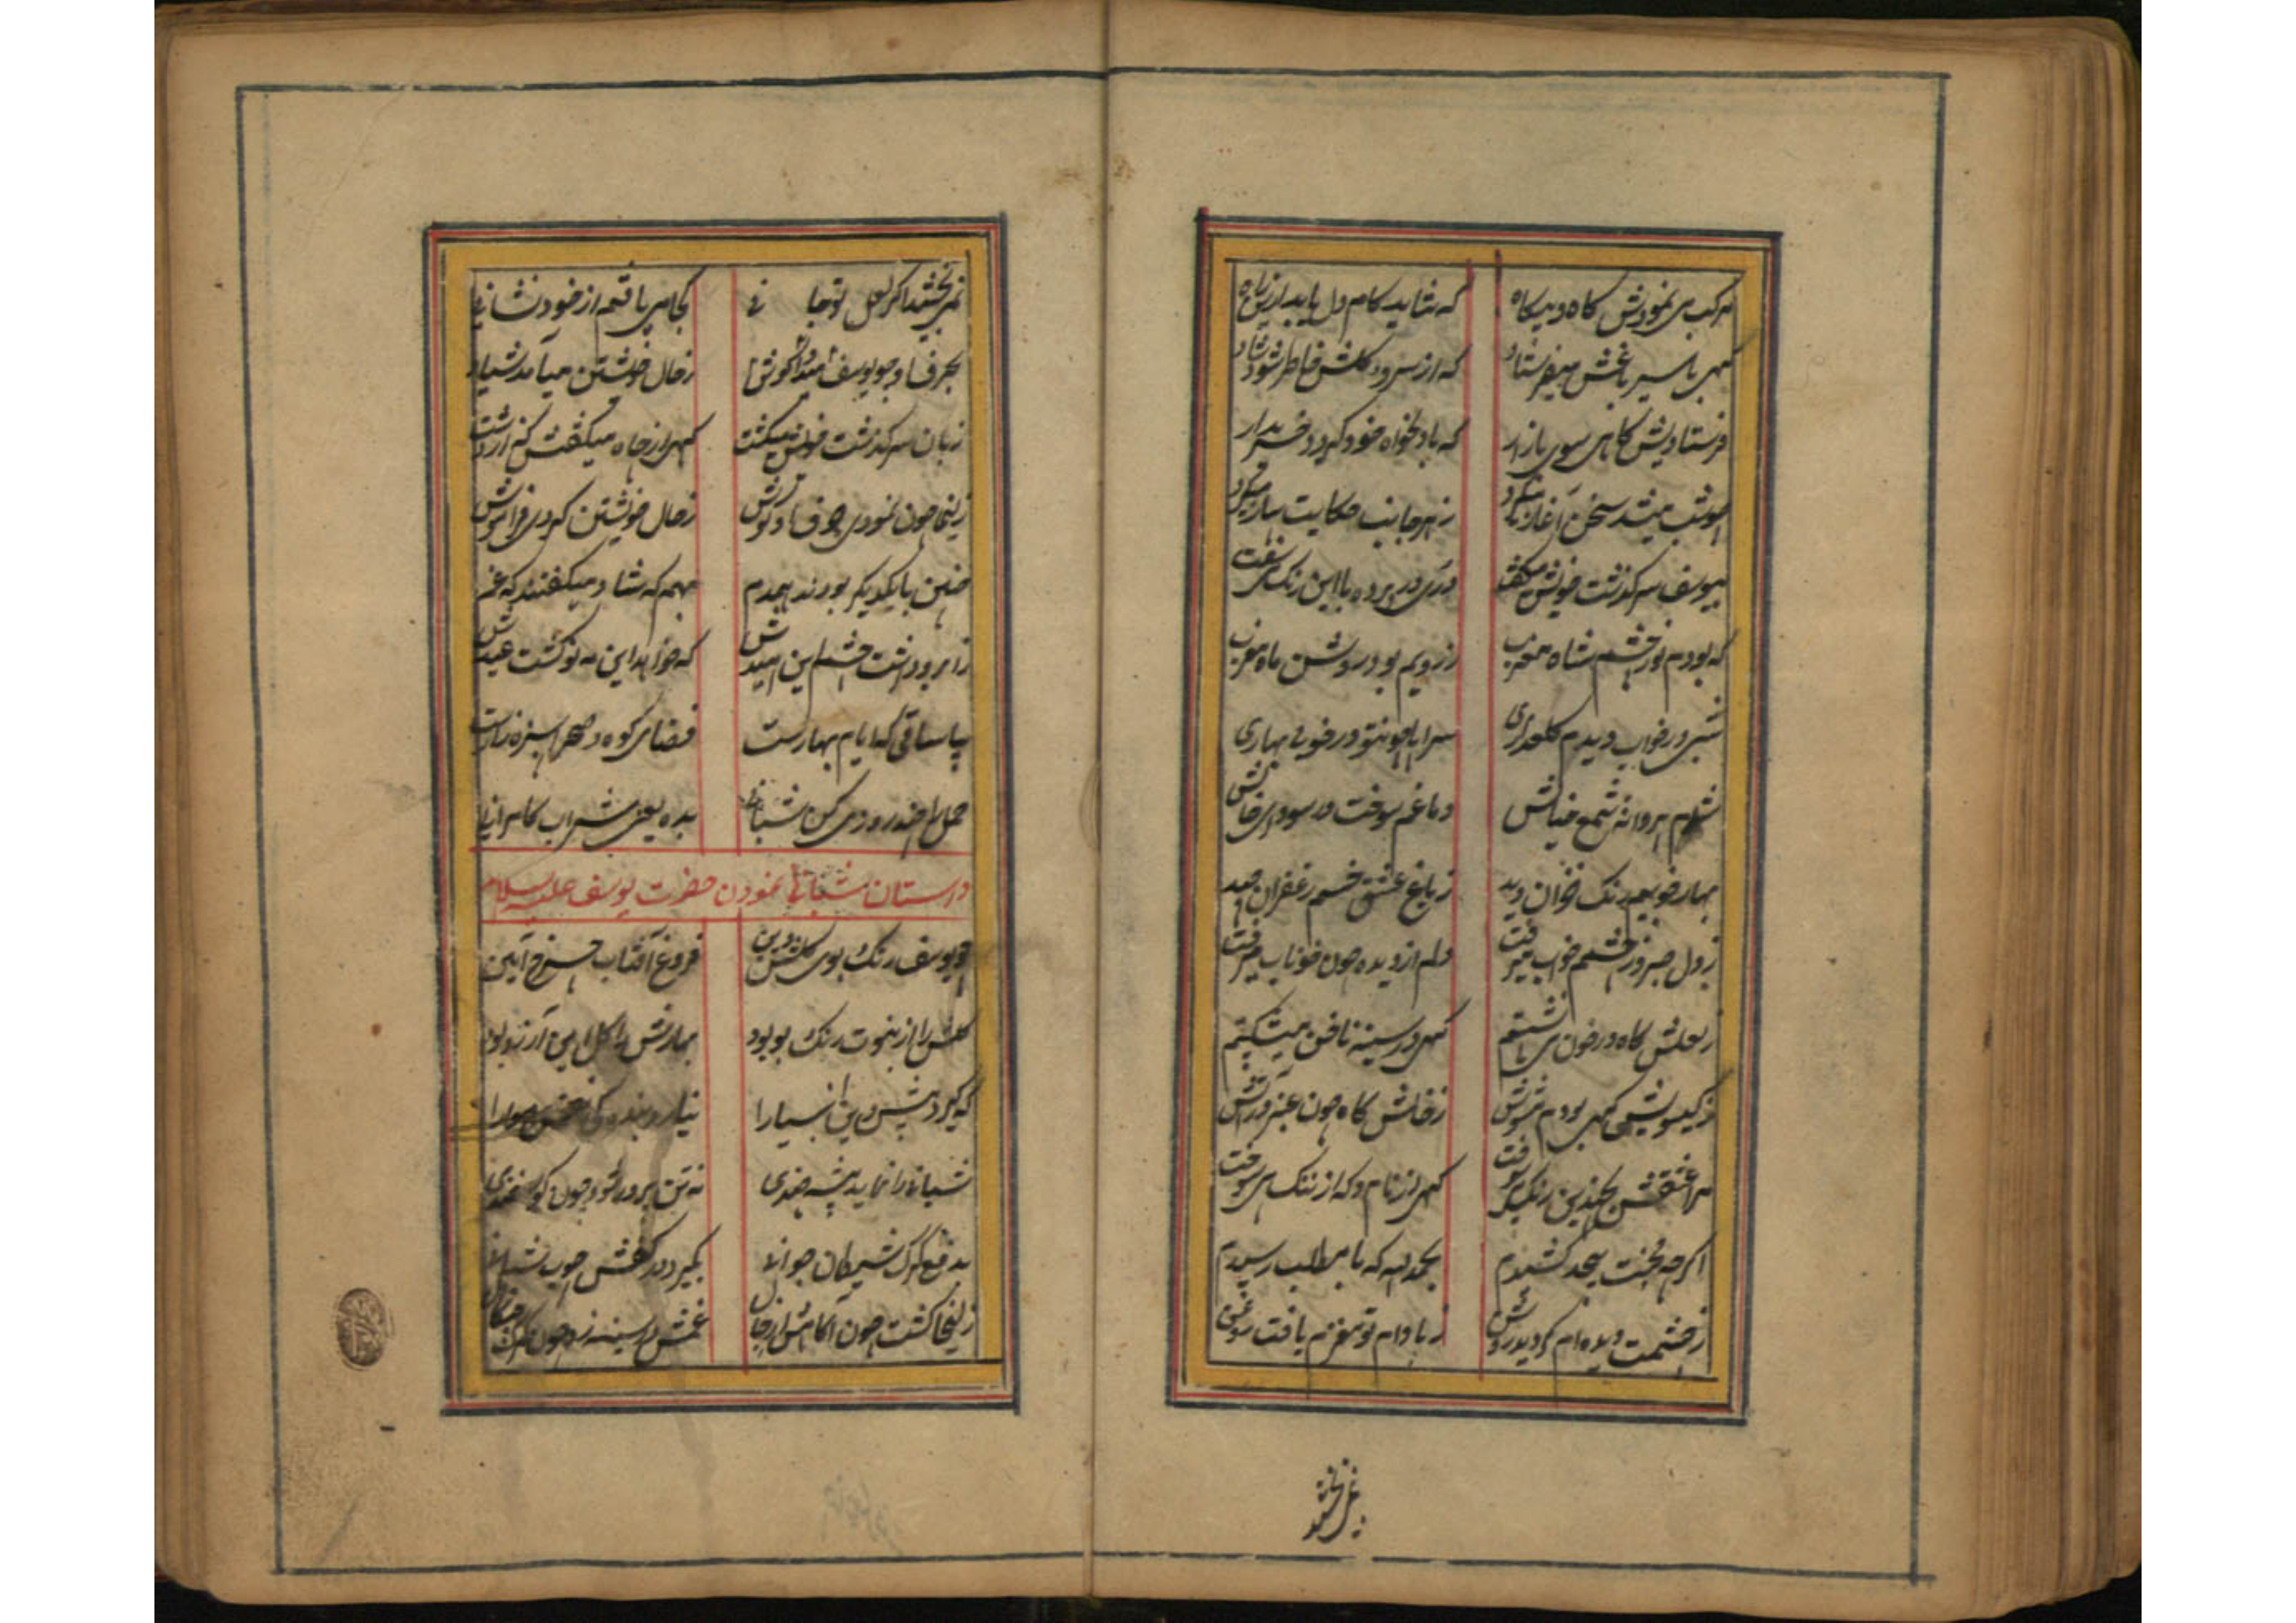 که شاید کام دل یابد ازین راه
گهی با سیر باغش میفرستاد که از سرو و گلش خاطر شود شاد
فرستادیش گاهی سوی بازار که با دلخواه خود گردد خریدار
چو شب میشد سخن آغاز میکرد ز هر جانب حکایت ساز میکرد
بیوسف سرگذشت خویش میگفت در پرده با این رنگ می سفت
که بودم نور چشم شاه مغرب ز رویم بود روشن ماه مغرب
شبی در خواب دیدم گلعذاری سراپا همچو تو در خوبی بهاری
شدم پروانه شمع خیالش دماغم سوخت در سودای خالش
بهار خوبیم رنگ خزان دید ز باغ عشق چشمم زعفران چید
ز دل صبر و ز چشمم خواب میرفت دلم از دیده چون خوناب میرفت
ز لعلش گاه در خون می نشستم گهی در سینه ناخن میشکستم
ز گیسویش گهی بودم مشوش ز خالش گاه چون عنبر در آتش
مرا عشقش بچندین رنگ گهی از نام و گه از ننگ می سوخت
اگر چه محنت بیحد کشیدم بحمد الله که با مطلب رسیدم
ز چشمت دیده ام گردید روشن ز بادام تو مغزم یافت روغن
نمی بخشید اگر لعل تو جانی کجا می یافتم از خود نشانی
بحرف او چو یوسف ز حال خویشتن میآمدش یاد
زبان سرگذشت خویش میگشت گهی از چاه میگفتش گه از دشت
زلیخا چون نمودی حرف او گوش ز حال خویشتن کردی فراموش
چنین با یکدیگر بودند همدم بهم گه شاد میگفتند گه غم
زابرو داشت چشم این امیدش که خواهد این مه نو گشت عیدش
بیا ساقی که ایام بهارست فضای کوه و صحرا سبزه زارست
بده یعنی شراب کامرانی
داستان شبانی نمودن حضرت یوسف علیه السلام
چو یوسف رنگ بوی گلشن دین فروغ آفتاب چرخ آیین
گلش را از نبوت رنگ بو بود بهارش را گل این آرزو بود
که گیرد پیش دین انبیا را
شبانی را نماید پیشه چندی نه تن پرور شود چون گوسفندی
بدفع گرگ شیطان جوانی بگیرد در کفش چوب شبانی
زلیخا گشت چون آگاه غمش در سینه زد چون گرگ
نمی بخشید